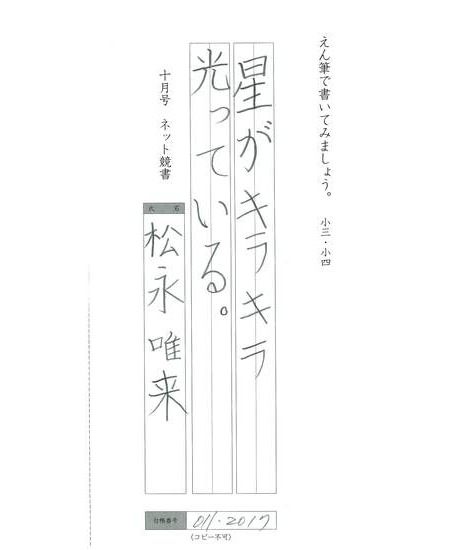 えん筆で書いてみましょう。 小三・小四
星がキラキラ
光っている。
十月号 ネット競書
氏名
松永唯来
台帳番号 011・2017
(コピー不可)